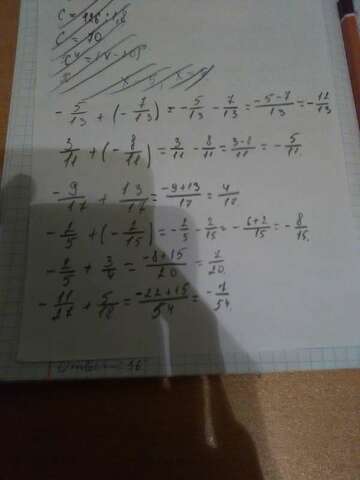 C = 126 : 1,8
C = 70
- 5/13 + (- 7/13) = - 5/13 - 7/13 = -5-7/13 = - 12/13
3/11 + (- 8/11) = 3/11 - 8/11 = 3-8/11 = - 5/11.
- 9/17 + 13/17 = -9+13/17 = 4/17.
- 2/5 + (- 2/15) = - 2/5 - 2/15 = - 6+2/15 = - 8/15.
- 2/5 + 3/4 = -8+15/20 = 7/20.
- 11/27 + 5/18 = -22+15/54 = - 7/54.
Ответ: 16